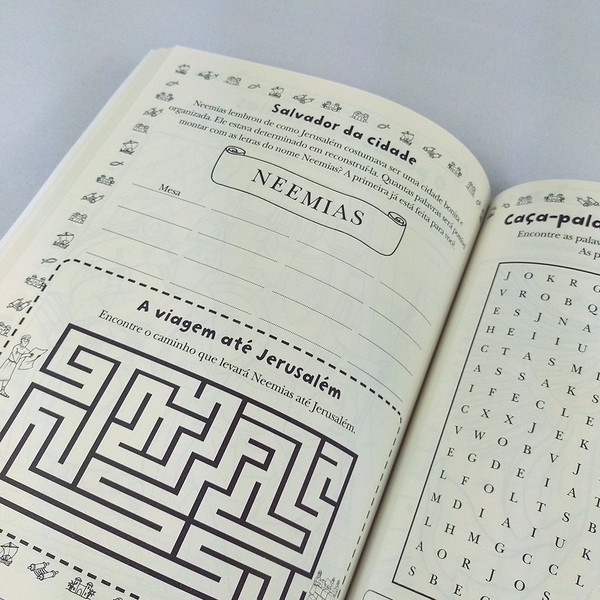 Salvador da Cidade
Neemias lembrou de como Jerusalém costumava ser uma cidade bonita e
organizada. Ele estava determinado em reconstruí-la. Quantas palavras você
montar com as letras do nome Neemias? A primeira já está feita para você.
NEEMIAS
Mesa
A viagem até Jerusalém
Encontre o caminho que levará Neemias até Jerusalém.
Caça-pala
Encontre as palav
As p
J O K R G
V R O B Q
E S J N A
H E I I U
C T A S M I
A S S A K S
I F E C L E
C X X J E K
V W O B V J
E G D E I A
L F O L T S
M D I A I U B
L H M G C K
A O R J O C L
S B E C S